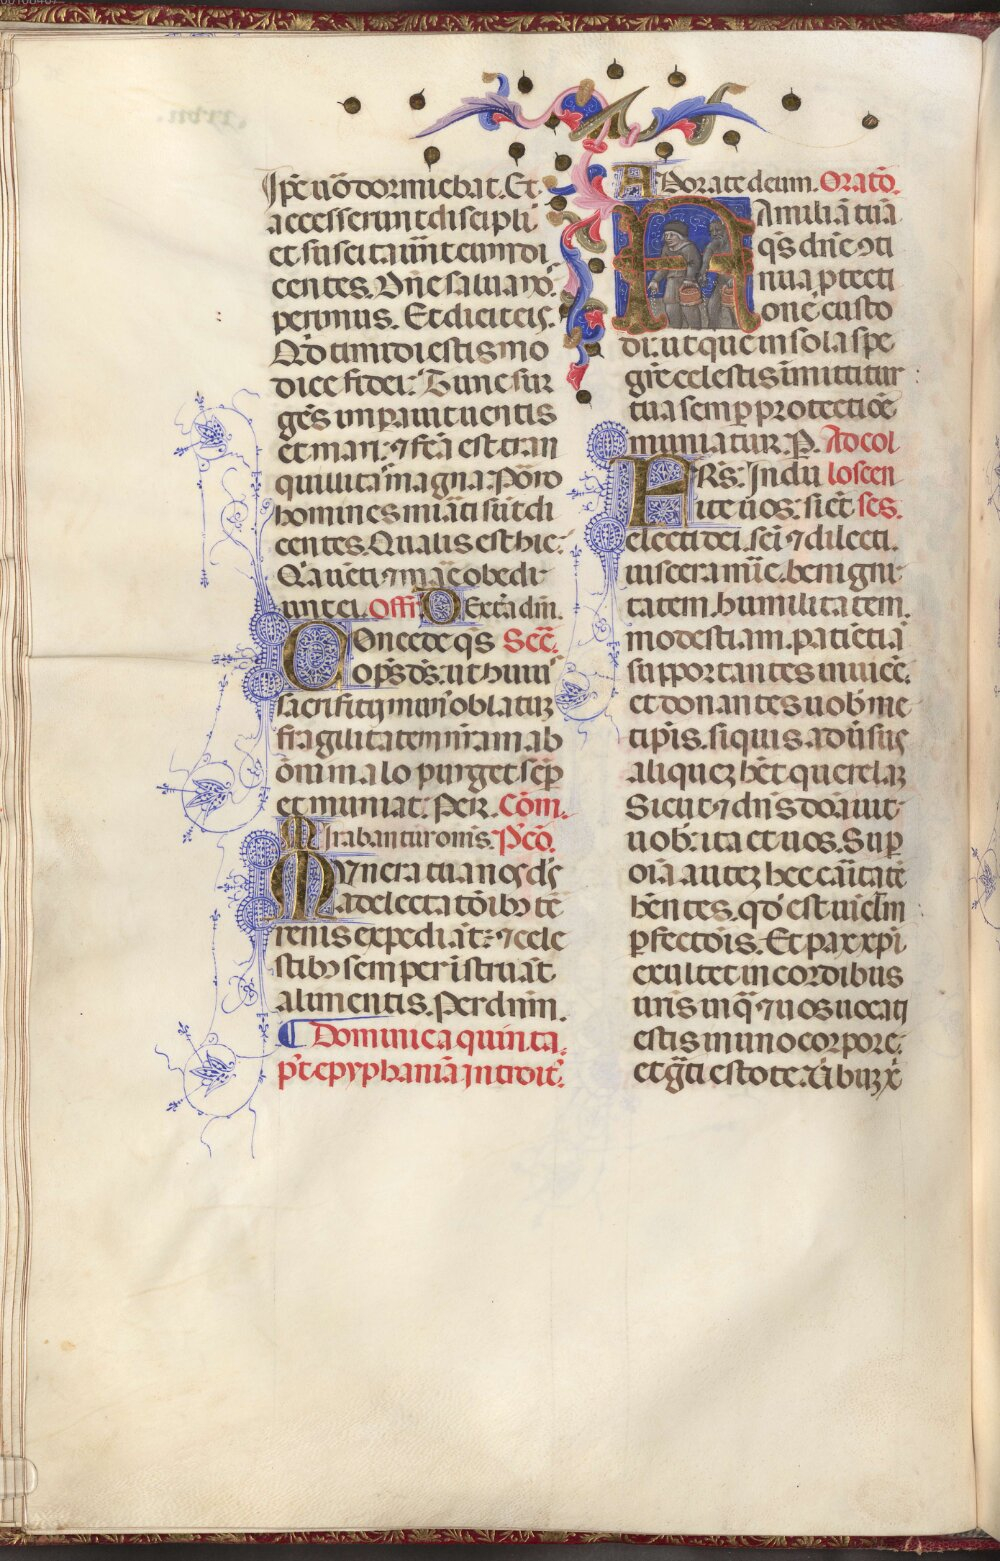 Ip̄e uō dormiebat. Et
accesserunt discipli
et suscitauūt eum di
centes. Dn̄e salua nō.
perimus. Et dicit eis.
Qd̄ timidi estis mo
dice fidei? Tunc sur
gēs imperauit uentis
et mari: ⁊ fc̄a est tran
quilitas magna. Porro
homines mirati sūt di
centes. Qualis est hic.
Q̄a uēti ⁊ mare obedi
unt ei. Off̄. Dextā dn̄i.
Concede qs̄ Sec̄.
op̄s ds̄. ut huiꝰ
sacrificij munꝰ oblatuꝫ
fragilitatem nr̄am ab
om̄i malo purget sēp
et muniat. Per. Com̄.
Mirabantur om̄s. P̄cō.
Munera tua nos ds̄
a delectatōibꝫ te
renis expediāt: ⁊ cele
stibꝫ semper īstruāt
alimentis. Per dn̄m.
Dominica quinta
pꝰt epyphaniā Introit̄.
Adorate deum. Oratō.
Familiā tuā
qs̄ dn̄e ꝯti
nua ꝓtecti
one custo
di: ut que in sola spe
gr̄e celestis īnititur
tua semꝑ protectiōe
muniatur. P. Ad col
FRS̄: Indu losen
ite uos: sic̄ ses.
electi dei. sc̄i ⁊ dilecti.
uiscera mīe. benigni
tatem. humilitatem.
modestiam. patiētiā
supportantes inuicē.
et donantes uob̄ me
tip̄is. siquis aduīsus
aliqueꝫ hēt querelaꝫ
Sicut ⁊ dn̄s donauit
uob̄: ita et uos. Suꝑ
oīa auteꝫ hec cāritatē
hn̄tes. qd̄ est uinclm̄
ꝑfectōis. Et pax xp̄i
exultet in cordibus
ur̄is in q̄ ⁊ uocati
estis in uno corpore:
et grāti estote. Uerbuꝫ x̄